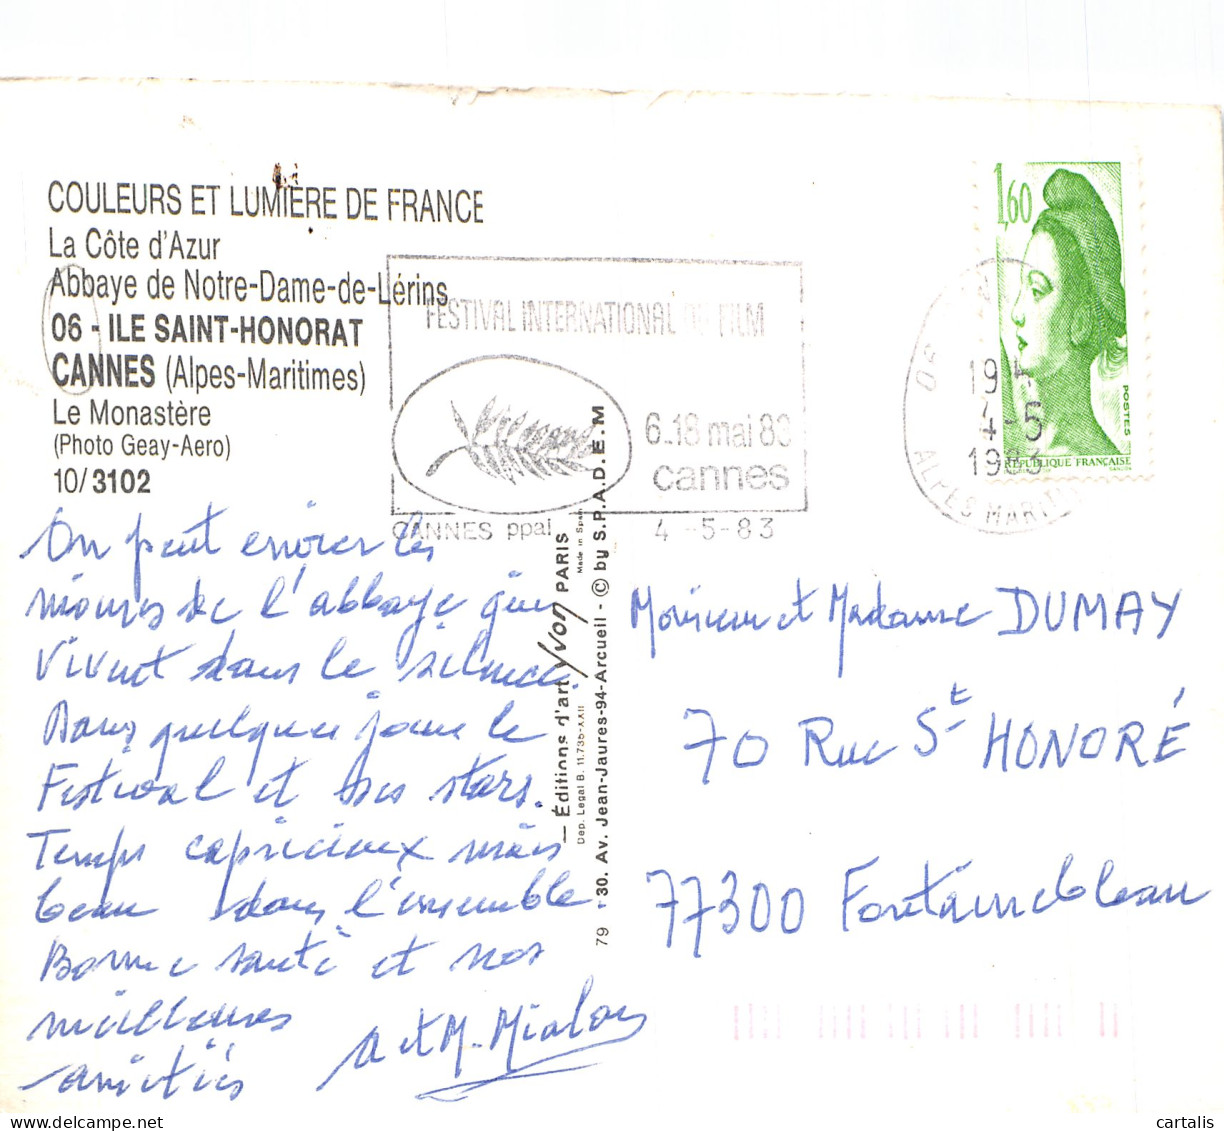 COULEURS ET LUMIÈRE DE FRANCE
La Côte d'Azur
Abbaye de Notre-Dame-de-Lérins
06 - ILE SAINT-HONORAT
CANNES (Alpes-Maritimes)
Le Monastère
(Photo Geay-Aero)
10/3102
FESTIVAL INTERNATIONAL DU FILM
6-18 mai 83
cannes
CANNES ppal
4 -5-83
1,60
POSTES
RÉPUBLIQUE FRANÇAISE
4-5
1983
ALPES MARITIMES
On peut envier les
moines de l'abbaye qui
vivent dans le silence.
Dans quelques jours le
Festival et ses stars.
Temps capricieux mais
beau dans l'ensemble
Bonne santé et nos
meilleures
amitiés
A et M. Mialou
— Éditions d'art Yvon PARIS
Made in Spain
Dep. Legal B. 11.735-XXII
79 130. Av. Jean-Jaures-94-Arcueil - © by S.P.A.D.E.M
Monsieur et Madame DUMAY
70 Rue St HONORÉ
77300 Fontainebleau
cartalis